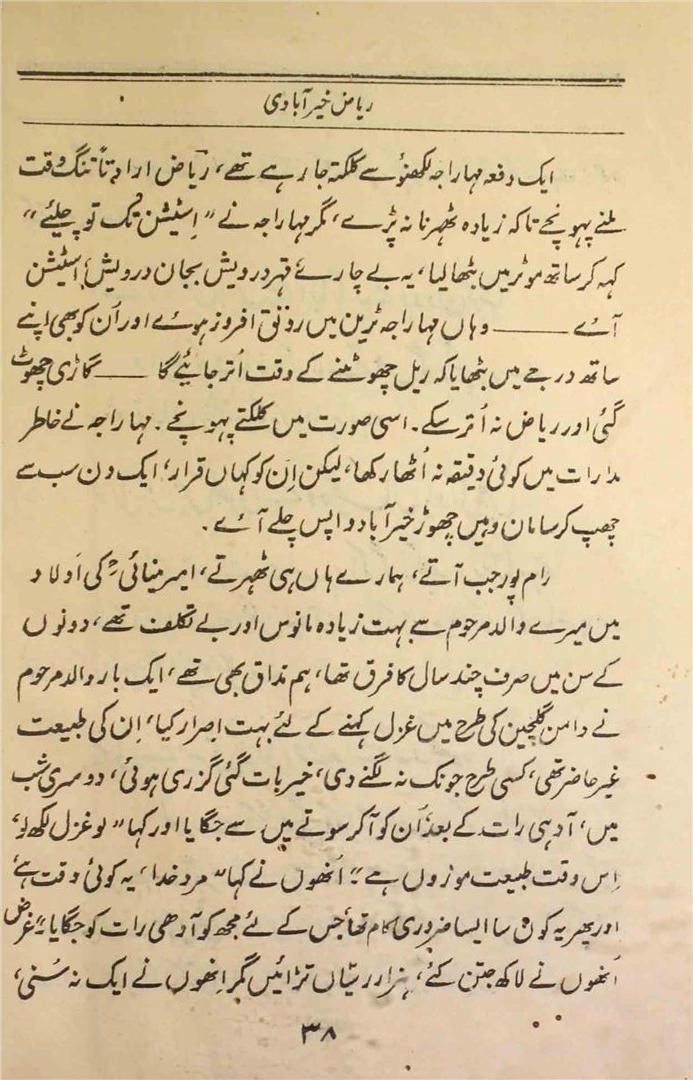 ریاض خیرآبادی
ایک دفعہ مہاراجہ لکھنؤ سے کلکتہ جا رہے تھے، ریاض ارادتاً تنگ وقت
ملنے پہونچے تاکہ زیادہ ٹھہرنا نہ پڑے، مگر مہاراجہ نے "اِسٹیشن تک تو چلئے"
کہہ کر ساتھ موٹر میں بٹھا لیا، یہ بے چارے قہر درویش بجان درویش، اسٹیشن
آئے ــــــ وہاں مہاراجہ ٹرین میں رونق افروز ہوئے اور اُن کو بھی اپنے
ساتھ درجے میں بٹھایا کہ ریل چھوٹنے کے وقت اُتر جائیے گا ــــــ گاڑی چھوٹ
گئی اور ریاض نہ اُتر سکے۔ اسی صورت میں کلکتے پہونچے۔ مہاراجہ نے خاطر
مدارات میں کوئی دقیقہ نہ اُٹھا رکھا، لیکن اِن کو کہاں قرار، ایک دن سب سے
چھپ کر سامان وہیں چھوڑ خیرآباد واپس چلے آئے۔
رام پور جب آتے، ہمارے ہاں ہی ٹھہرتے، امیر مینائیؒ کی اَولاد
میں میرے والد مرحوم سے بہت زیادہ مانوس اور بے تکلف تھے، دونوں
کے سن میں صرف چند سال کا فرق تھا، ہم مذاق بھی تھے، ایک بار والد مرحوم
نے دامن گلچین کی طرح میں غزل کہنے کے لئے بہت اِصرار کیا، اِن کی طبیعت
غیر حاضر تھی، کسی طرح جونک نہ لگنے دی، خیر بات گئی گزری ہوئی، دوسری شب
میں، آدہی رات کے بعد اُن کو آ کر سوتے میں سے جگایا اور کہا "لو غزل لکھ لو،
اِس وقت طبیعت موزوں ہے" اُنھوں نے کہا "مرد خدا، یہ کوئی وقت ہے
اور پھر یہ کون سا ایسا ضروری کام تھا جس کے لئے مجھ کو آدھی رات کو جگایا" غرض
اُنھوں نے لاکھ جتن کئے، ہزار رسّیاں تڑائیں مگر اِنھوں نے ایک نہ سُنی،
۳۸